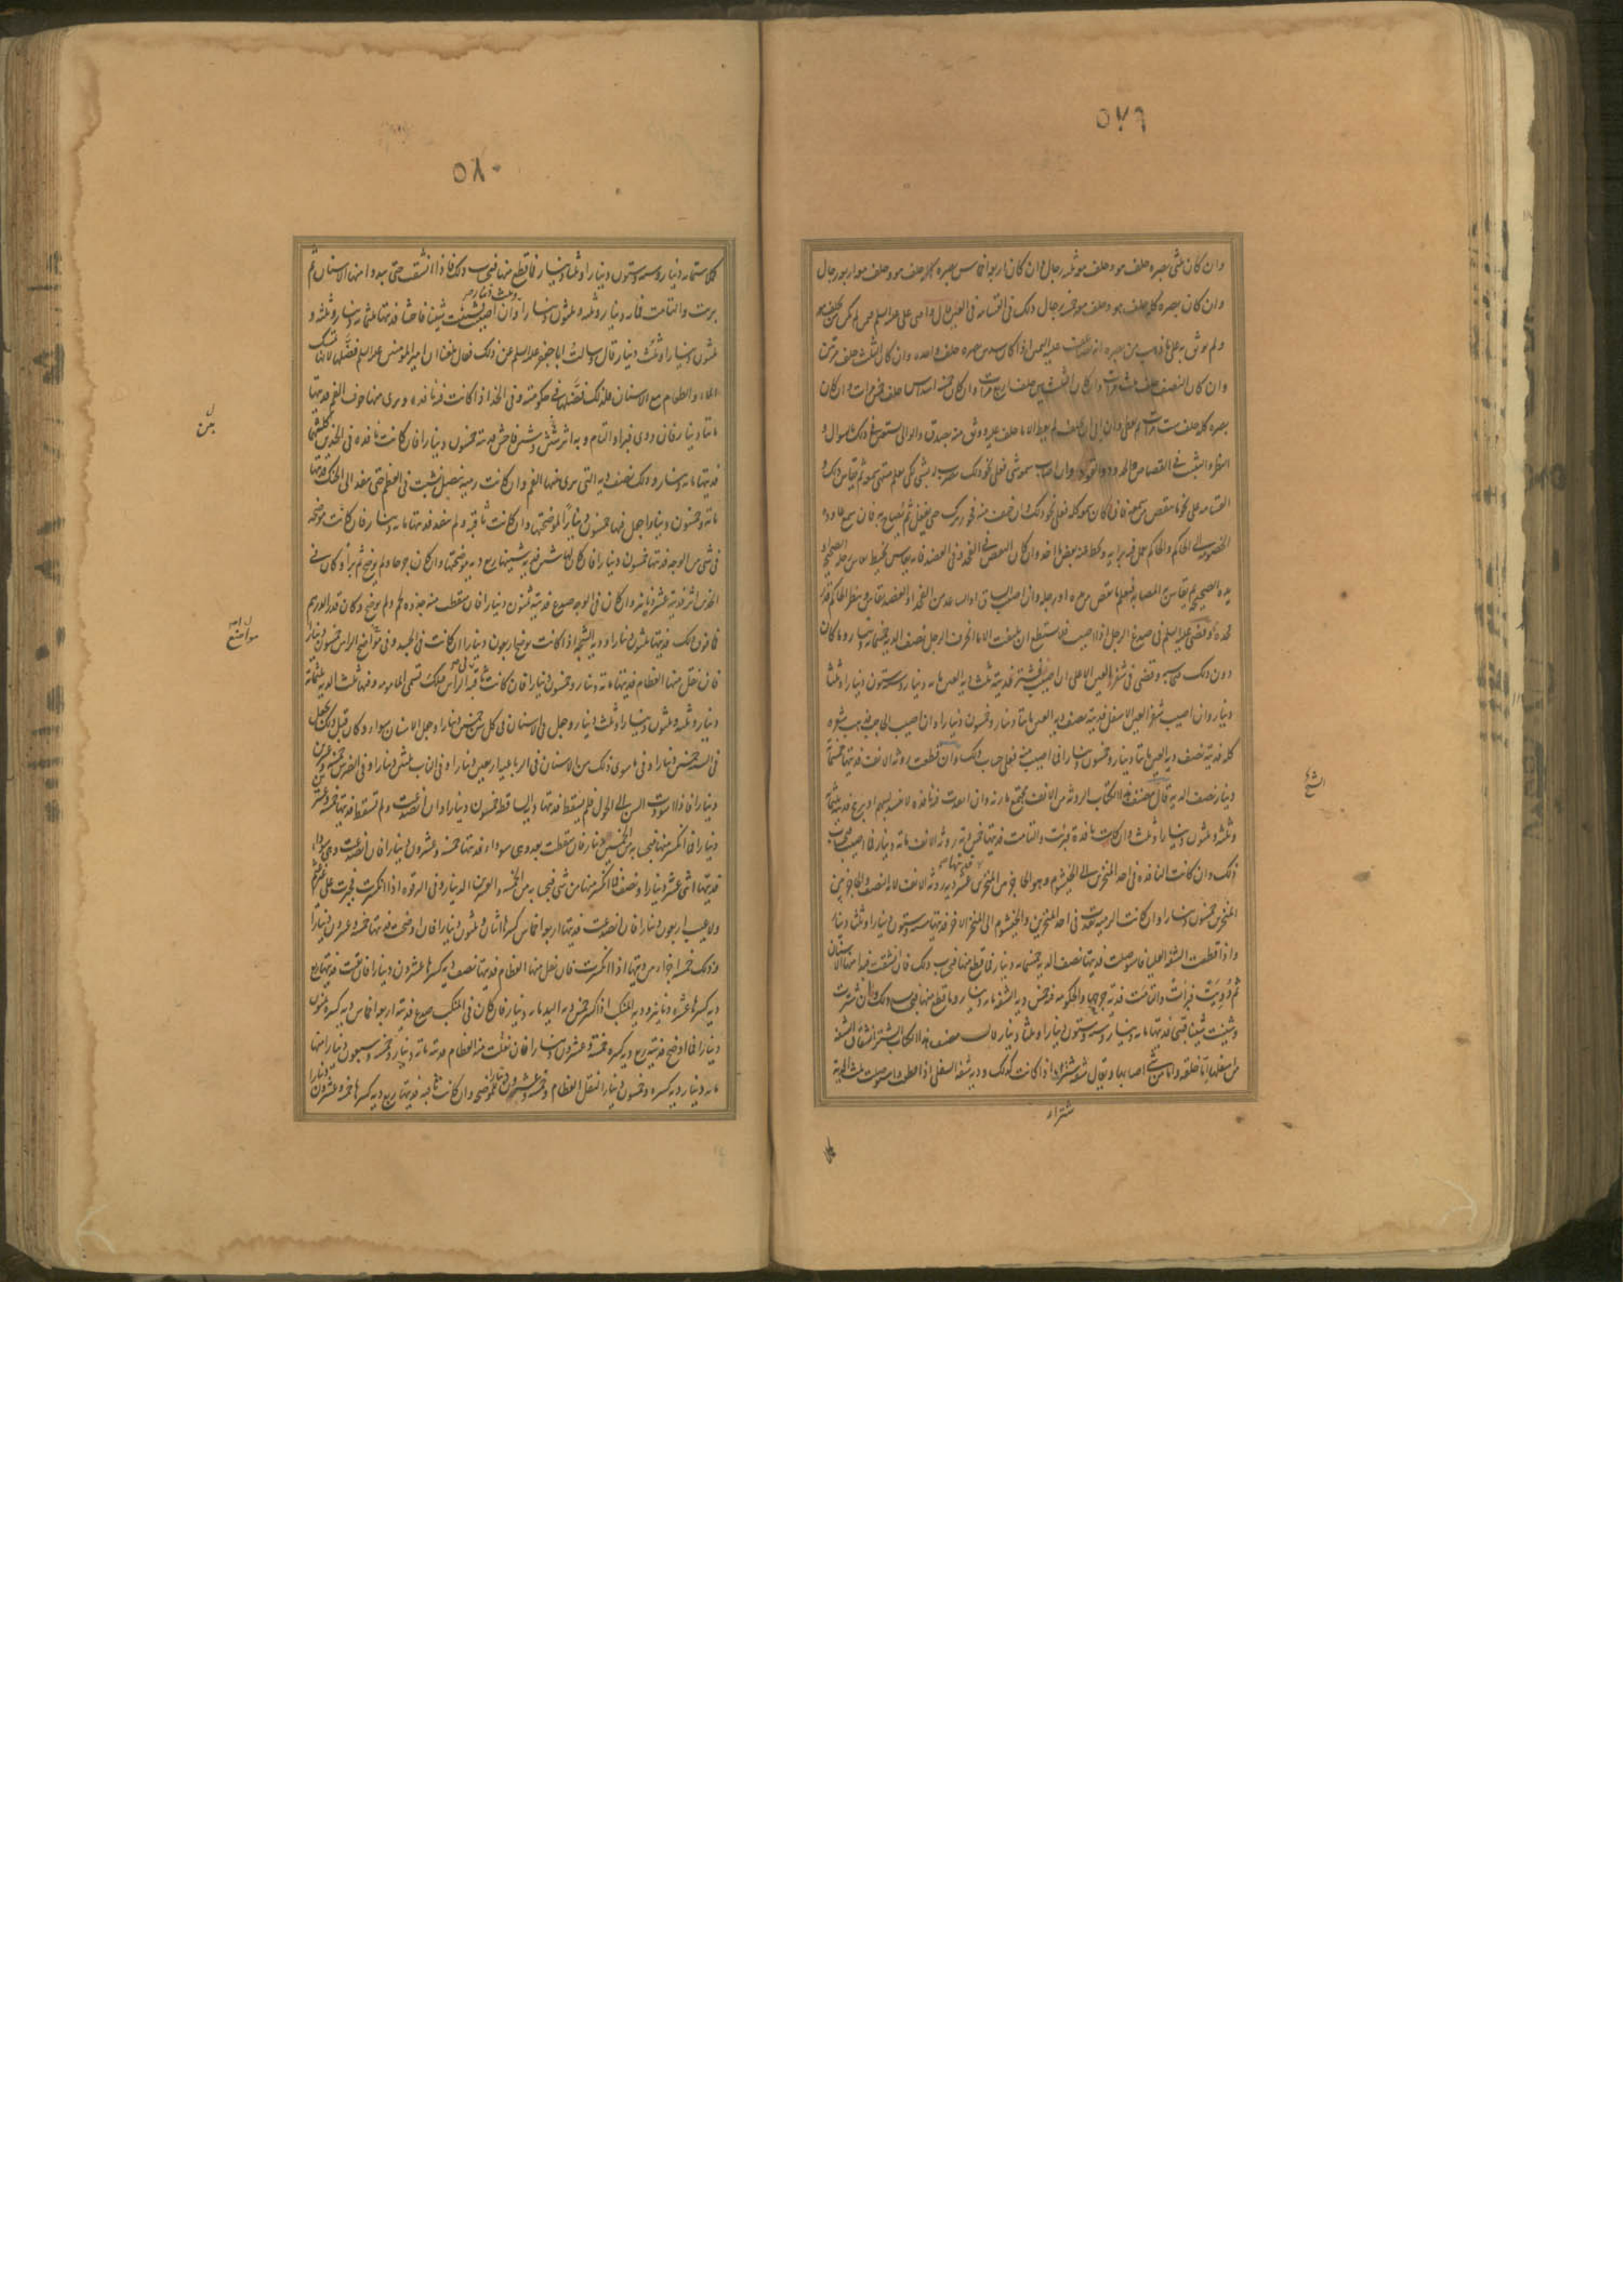 ٥٧٩
وان كان ثلثى بصره حلف هو وحلف معه ثلثه رجال وان كان اربعه اخماس بصره حلف هو وحلف معه اربعه رجال
وان كان بصره كله حلف هو وحلف معه خمسه رجال ذلك فى القسامه فى العين قال وافتى على عليه السلم فمن لم يكن له من يحلف معه
ولم يوثق به على ما ذهب من بصره انه يضاعف عليه اليمين اذا كان سدس بصره حلف واحده وان كان الثلث حلف مرتين
وان كان النصف حلف ثلث مرات وان كان الثلثين حلف اربع مرات وان كان خمسه اسداس حلف خمس مرات وان كان
بصره كله حلف ست مرات ثم يعطى وان ابى ان يحلف لم يعط الا ما حلف عليه ووثق منه بصدق والوالى يستعين فى ذلك بالسوال و
النظر والتثبت فى القصاص والحدود والقود وان اصاب سمعه شى فعلى نحو ذلك يضرب له بشى كى يعلم منتهى سمعه ثم يقاس ذلك و
القسامه على نحو ما ينقص من سمعه فان كان سمعه كله فعلى نحو ذلك وان خيف منه فجور ترك حتى يغفل ثم يصاح به فان سمع عاوده
الخصوم الى الحاكم والحاكم يعمل فيه برايه ويحط عنه بعض ما اخذ وان كان النقص فى الفخذ او فى العضد فانه يقاس بخيط يقاس رجله الصحيحه او
يده الصحيحه ثم يقاس به المصابه فيعلم ما نقص من يده او رجله وان اصيب الساق او الساعد من الفخذ او العضد يقاس وينظر الحاكم قدر
فخذه وقضى عليه السلم فى صدغ الرجل اذا اصيب فلم يستطع ان يلتفت الا ما انحرف الرجل نصف الديه خمسمائه دينار وما كان
دون ذلك فبحسابه وقضى فى شفر العين الاعلى ان اصيب فشتر فديته ثلث ديه العين مائه دينار وسته وستون دينارا وثلثا
دينار وان اصيب شفر العين الاسفل فديته نصف ديه العين مائتا دينار وخمسون دينارا وان اصيب الحاجب فذهب شعره
كله فديته نصف ديه العين مائتا دينار وخمسون دينارا فما اصيب منه فعلى حساب ذلك وان قطعت روثه الانف فديتها خمسمائه
دينار نصف الديه قال مصنف هذا الكتاب الروثه من الانف مجتمع مارنه وان انفذت فيه نافذه لا تنسد بسهم او برمح فديته ثلثمائه
وثلثه وثلثون دينارا وثلث وان كانت نافذه فبرئت والتامت فديتها خمس ديه روثه الانف مائه دينار فما اصيب فبحساب
ذلك وان كانت النافذه فى احد المنخرين الى الخيشوم وهو الحاجز بين المنخرين فديتها عشر ديه روثه الانف لانه النصف والحاجز بين
المنخرين خمسون دينارا وان كانت الرميه نفذت فى احد المنخرين والخيشوم الى المنخر الاخر فديتها سته وستون دينارا وثلثا دينار
واذا قطعت الشفه العليا فاستوصلت فديتها نصف الديه خمسمائه دينار فما قطع منها فبحساب ذلك فان انشقت فبدا منها الاسنان
ثم دوويت فبرات والتامت فديه جرحها والحكومه فيه خمس ديه الشفه مائه دينار وما قطع منها فبحساب ذلك وان شترت
وشينت شينا قبيحا فديتها مائه دينار وسته وستون دينارا وثلثا دينار قال مصنف هذا الكتاب الشتر انشقاق الشفه
من اسفلها اما خلقه واما من شى اصابها ويقال شفه شتراء اذا كانت كذلك وديه شفه السفلى اذا قطعت واستوصلت ثلثا الديه
شتراء
٥٨٠
كملا ستمائه دينار وسته وستون دينارا وثلثا دينار فما قطع منها فبحساب ذلك فاذا انشقت حتى يبدوا منها الاسنان ثم
برئت والتامت فمائه دينار وثلثه وثلثون دينارا وثلث دينار وان اصيبت فشينت شينا فاحشا فديتها ثلثمائه دينار وثلثه و
ثلثون دينارا وثلث دينار قال وسالت ابا جعفر عليه السلم عن ذلك فقال بلغنا ان امير المومنين عليه السلم فضلها لانها تمسك
الماء والطعام مع الاسنان فلذلك فضلها فى حكومته وفى الخد اذا كانت فيه نافذه ويرى منها جوف الفم فديتها
مائتا دينار فان دوى فبرا والتام وبه اثر شين وشين فاحش فديته خمسون دينارا فان كانت نافذه فى الخدين كليهما
فديتها مائه دينار وذلك نصف ديه التى يرى منها الفم وان كانت رميه بنصل ينشب فى العظم حتى ينفذ الى الحنك فديتها
مائه وخمسون دينارا جعل منها خمسون دينارا لموضحتها وان كانت ثاقبه ولم ينفذ فديتها مائه دينار فان كانت موضحه
فى شى من الوجه فديتها خمسون دينارا فان كان لها شين فديه شينها ربع ديه موضحتها وان كان جرحا ولم يوضح ثم برا وكان فى
الخدين اثر فديته عشره دنانير وان كان فى الوجه صدع فديته ثمنون دينارا فان سقطت منه جذوه لحم ولم يوضح وكان قدر الدرهم
فما فوق ذلك فديتها ثلثون دينارا وديه الشجه اذا كانت توضح اربعون دينارا ان كانت فى الجسد وفى مواضح الراس خمسون دينارا
فان نقل منها العظام فديتها مائه دينار وخمسون دينارا فان كانت ثاقبه فى الراس فتلك تسمى المامومه وفيها ثلث الديه ثلثمائه
دينار وثلثه وثلثون دينارا وثلث دينار وجعل فى الاسنان فى كل سن خمسين دينارا وجعل الاسنان سواء وكان قبل ذلك يجعل
فى الثنيه خمسين دينارا وفى ما سوى ذلك من الاسنان فى الرباعيه اربعين دينارا وفى الناب ثلثين دينارا وفى الضرس خمسه وعشرين
دينارا فاذا اسودت السن الى الحول فلم يسقط فديتها ديه الساقط خمسون دينارا وان انصدعت ولم تسقط فديتها خمسه وعشرون
دينارا فما انكسر منها فبحسابه من الخمسين دينار فان سقطت بعد وهى سوداء فديتها خمسه وعشرون دينارا فان انصدعت وهى سوداء
فديتها اثنى عشر دينارا ونصف فما انكسر منها من شى فبحسابه من الخمسه والعشرين الدينار وفى الترقوه اذا انكسرت فجبرت على غير عثم
ولا عيب اربعون دينارا فان انصدعت فديتها اربعه اخماس كسرها اثنان وثلثون دينارا فان اوضحت فديتها خمسه وعشرون دينارا
وذلك خمسه اجزاء من ديتها اذا انكسرت فان نقل منها العظام فديتها نصف ديه كسرها عشرون دينارا فان نقبت فديتها ربع
ديه كسرها عشره دنانير وديه المنكب اذا كسر خمس ديه اليد مائه دينار فان كان فى المنكب صدع فديته اربعه اخماس ديه كسره ثمنون
دينارا فما اوضح فديته ربع ديه كسره خمسه وعشرون دينارا فان نقلت منه العظام فديته مائه دينار وخمسه وسبعون دينارا منها
مائه دينار ديه كسره وخمسون دينارا لنقل العظام وخمسه وعشرون دينارا للموضحه وان كانت ناقبه فديتها ربع ديه كسرها خمسه وعشرون دينارا
مواضح